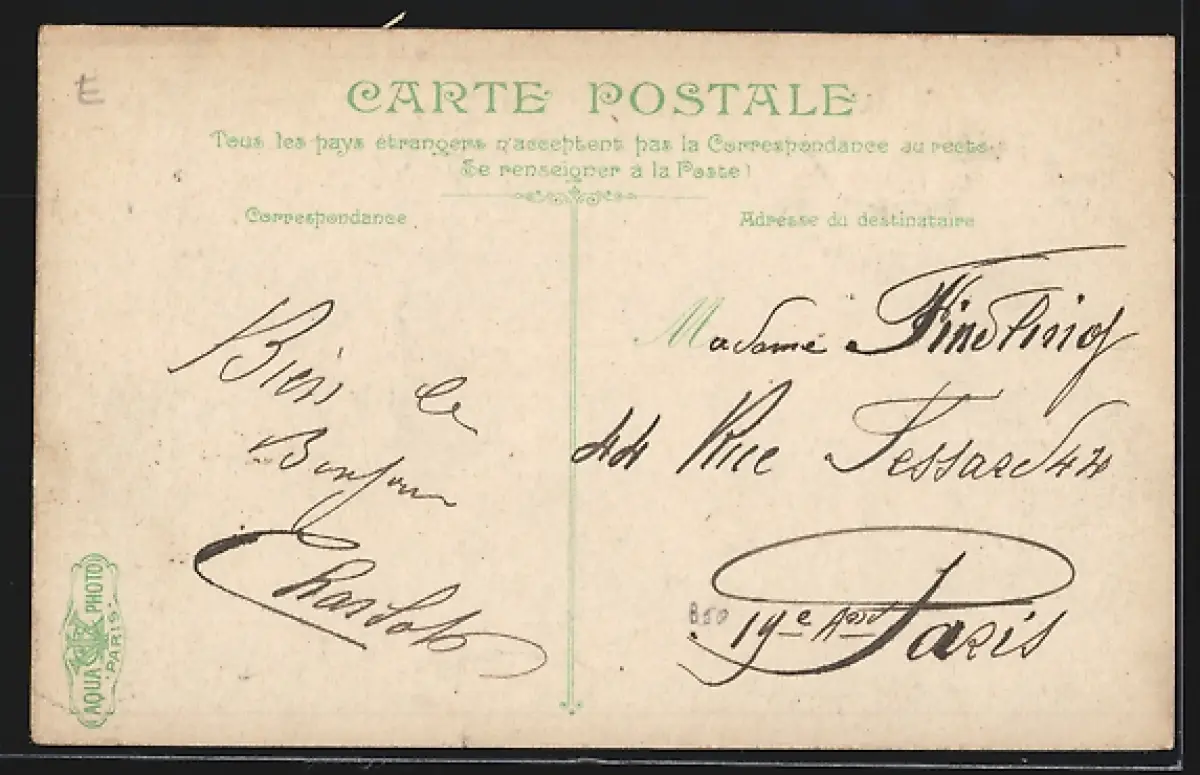 E
CARTE POSTALE
Tous les pays étrangers n'acceptent pas la Correspondance au recto.
(Se renseigner à la Poste)
Correspondance
Adresse du destinataire
Bien le
Bonjour
Madame
44 Rue Tessard 44
19e Arrd Paris
B50
AQUA PHOTO
PARIS